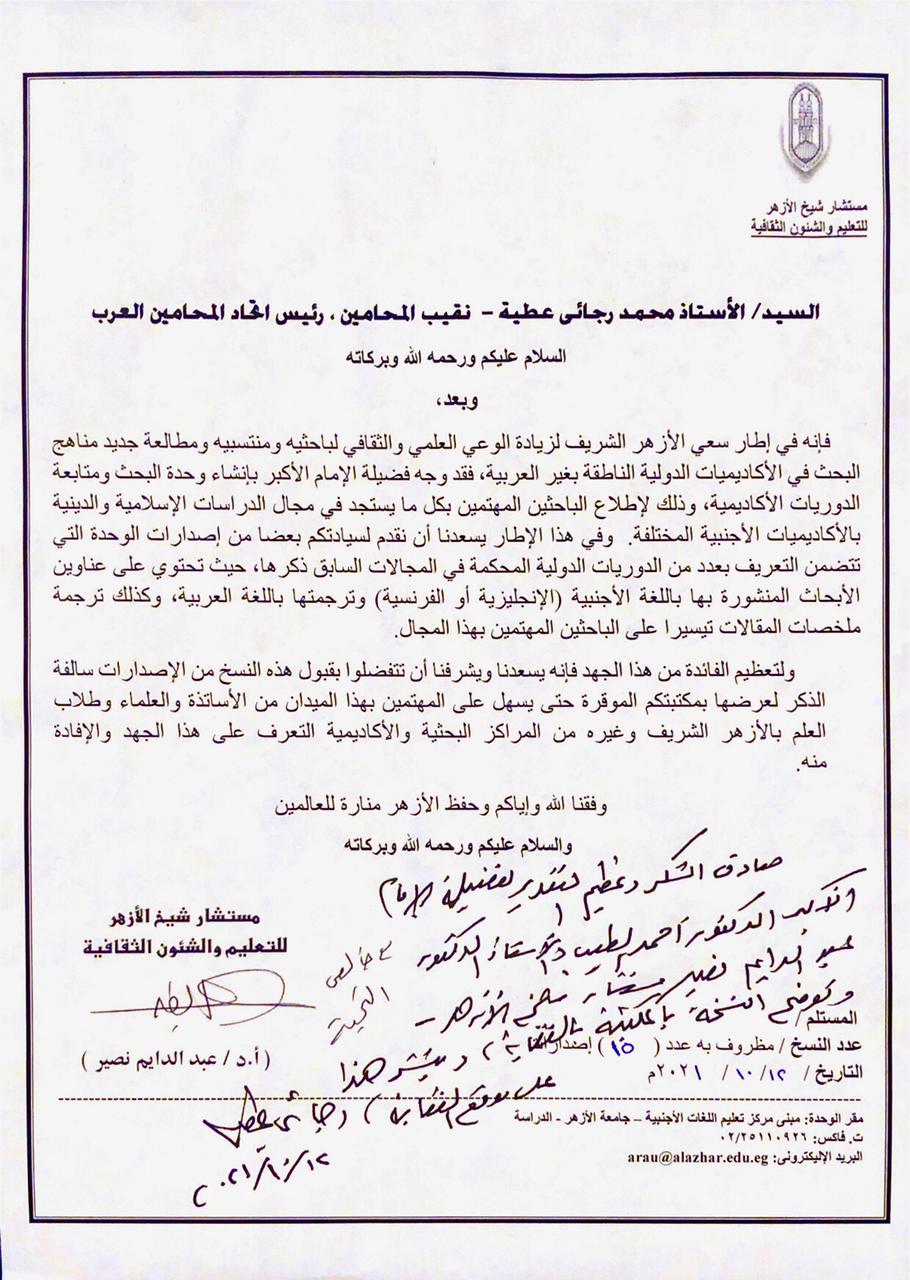 مستشار شيخ الأزهر
للتعليم والشئون الثقافية
السيد/ الأستاذ محمد رجائى عطية - نقيب المحامين ، رئيس اتحاد المحامين العرب
السلام عليكم ورحمه الله وبركاته
وبعد،
فإنه في إطار سعي الأزهر الشريف لزيادة الوعي العلمي والثقافي لباحثيه ومنتسبيه ومطالعة جديد مناهج
البحث في الأكاديميات الدولية الناطقة بغير العربية، فقد وجه فضيلة الإمام الأكبر بإنشاء وحدة البحث ومتابعة
الدوريات الأكاديمية، وذلك لإطلاع الباحثين المهتمين بكل ما يستجد في مجال الدراسات الإسلامية والدينية
بالأكاديميات الأجنبية المختلفة. وفي هذا الإطار يسعدنا أن نقدم لسيادتكم بعضا من إصدارات الوحدة التي
تتضمن التعريف بعدد من الدوريات الدولية المحكمة في المجالات السابق ذكرها، حيث تحتوي على عناوين
الأبحاث المنشورة بها باللغة الأجنبية (الإنجليزية أو الفرنسية) وترجمتها باللغة العربية، وكذلك ترجمة
ملخصات المقالات تيسيرا على الباحثين المهتمين بهذا المجال.
ولتعظيم الفائدة من هذا الجهد فإنه يسعدنا ويشرفنا أن تتفضلوا بقبول هذه النسخ من الإصدارات سالفة
الذكر لعرضها بمكتبتكم الموقرة حتى يسهل على المهتمين بهذا الميدان من الأساتذة والعلماء وطلاب
العلم بالأزهر الشريف وغيره من المراكز البحثية والأكاديمية التعرف على هذا الجهد والإفادة
منه.
وفقنا الله وإياكم وحفظ الأزهر منارة للعالمين
والسلام عليكم ورحمه الله وبركاته
صادق الشكر وعظيم التقدير لفضيلة الإمام
الأكبر الدكتور أحمد الطيب والأستاذ الدكتور
عبد الدايم نصير مستشار شيخ الأزهر -
مع خالص
التحية
وتوضع النسخة بالمكتبة بالنقابة، وينشر هذا
على موقع النقابة، رجائى عطية
٢٠٢١/١٠/١٢
مستشار شيخ الأزهر
للتعليم والشئون الثقافية
(أ.د/ عبد الدايم نصير )
المستلم/
عدد النسخ / مظروف به عدد ( ١٥ ) إصدارات
التاريخ / ١٢/ ١٠ / ٢٠٢١م
مقر الوحدة: مبنى مركز تعليم اللغات الأجنبية – جامعة الأزهر - الدراسة
ت. فاكس: ٠٢/٢٥١١٠٩٢٦
البريد الإليكترونى: arau@alazhar.edu.eg